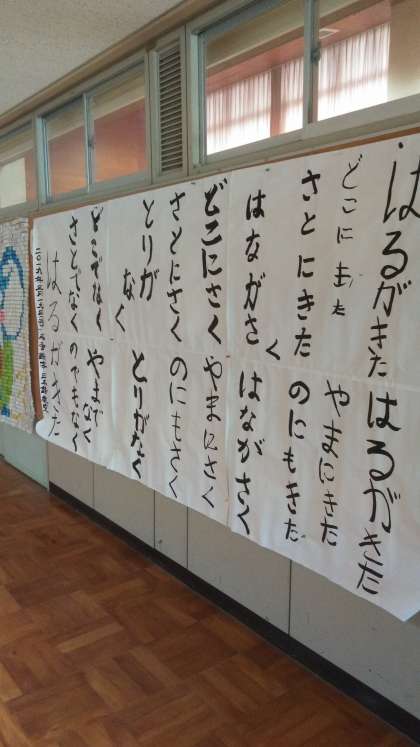 はるがきた はるがきた
どこに きた やまにきた
さとにきた のにもきた
はながさく はながさく
どこにさく やまにさく
さとにさく のにもさく
とりがなく とりがなく
どこでなく やまでなく
さとでなく のでもなく
はるがきた
二〇一九年